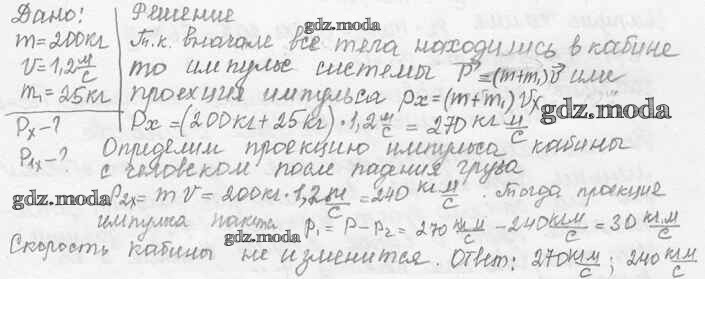 Дано:
m = 200кг
V = 1,2 м/с
m₁ = 25кг
Pₓ - ?
P₁ₓ - ?
Решение
gdz.moda
Т.к. вначале все тела находились в кабине
то импульс системы P⃗ = (m+m₁)V⃗ или
проекция импульса pₓ = (m+m₁) Vₓ
gdz.moda
Pₓ = (200кг + 25кг) · 1,2 м/с = 270 кг м/с
Определим проекцию импульса кабины
с человеком после падения груза
gdz.moda
P₂ₓ = m V = 200кг · 1,2 м/с = 240 кг м/с . Тогда проекция
импулка пакета p₁ = P - P₂ = 270 кг м/с - 240 кг м/с = 30 кг.м/с
gdz.moda
Скорость кабины не изменится. Ответ: 270 кг м/с ; 240 кг м/с